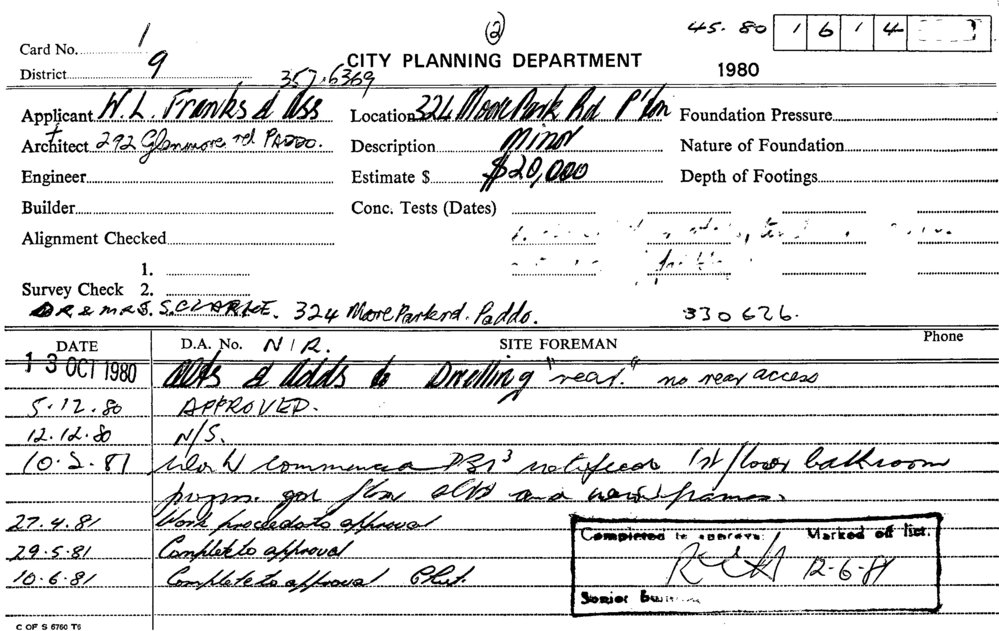 (2)
45. 80 1 6 1 4
Card No. 1
CITY PLANNING DEPARTMENT
1980
District 9
357.6369
Applicant W. L. Franks & Ass Location 324 Moore Park Rd P'ton Foundation Pressure
+
Architect 292 Glenmore rd PADDO. Description Minor Nature of Foundation
Engineer Estimate $ $20,000 Depth of Footings
Builder Conc. Tests (Dates)
Alignment Checked
1.
Survey Check 2.
DR & MRS. S. CLARKE. 324 Moore Park rd. Paddo. 330626.
DATE D.A. No. N/R. SITE FOREMAN Phone
13 OCT 1980 Alts & Adds to Dwelling "rear." no rear access
5.12.80 APPROVED.
12.12.80 N/S.
10.2.81 Work commenced notified 1st floor bathroom
floor and frames.
27.4.81 Work proceeds to approval
29.5.81 Complete to approval
10.6.81 Complete to approval
Completed to approval Marked off list.
12-6-81
Senior
C OF S 6760 T6